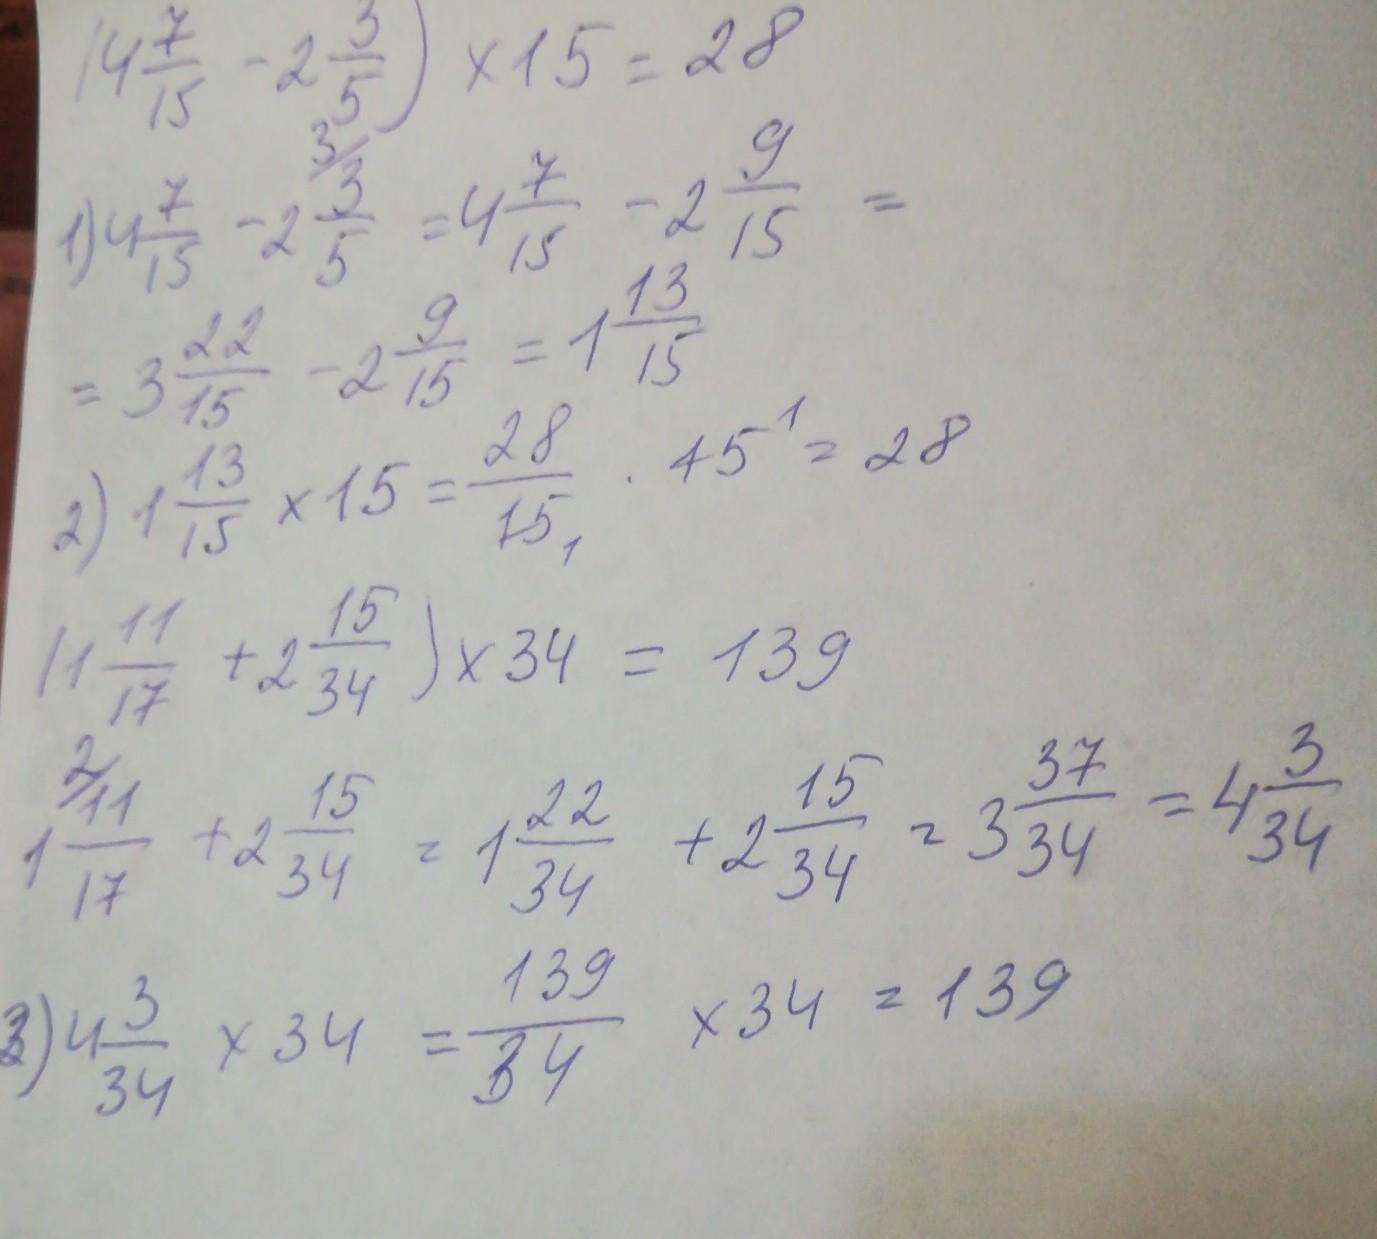 (4 7/15 - 2 3/5) × 15 = 28
1) 4 7/15 - 2 3/5 3/ = 4 7/15 - 2 9/15 =
= 3 22/15 - 2 9/15 = 1 13/15
2) 1 13/15 × 15 = 28/15 1 · 15 1 = 28
(1 11/17 + 2 15/34) × 34 = 139
2/ 1 11/17 + 2 15/34 = 1 22/34 + 2 15/34 = 3 37/34 = 4 3/34
2) 4 3/34 × 34 = 139/34 × 34 = 139